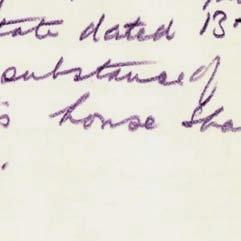 tate dated 13
substance of
s house Sha
.